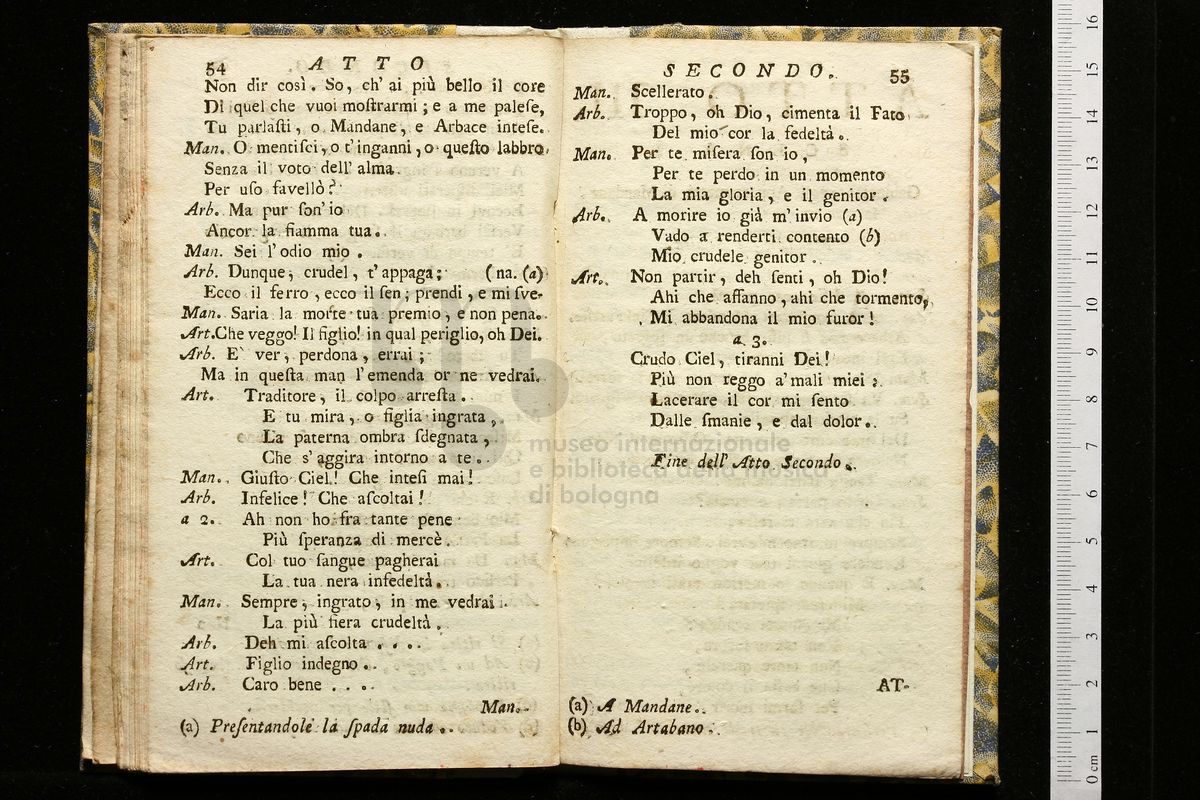 54 ATTO
Non dir così. So, ch' ai più bello il core
Di quel che vuoi moſtrarmi; e a me paleſe,
Tu parlaſti, o Mandane, e Arbace inteſe.
Man. O mentiſci, o t'inganni, o queſto labbro
Senza il voto dell' alma
Per uſo favellò?
Arb. Ma pur ſon' io
Ancor la fiamma tua.
Man. Sei l'odio mio.
Arb. Dunque, crudel, t'appaga; (na. (a)
Ecco il ferro, ecco il ſen; prendi, e mi ſve-
Man. Saria la morte tua premio, e non pena.
Art. Che veggo! Il figlio! in qual periglio, oh Dei.
Arb. E` ver, perdona, errai;
Ma in queſta man l'emenda or ne vedrai.
Art. Traditore, il colpo arreſta.
E tu mira, o figlia ingrata,
La paterna ombra ſdegnata,
Che s'aggira intorno a te.
Man. Giuſto Ciel! Che inteſi mai!
Arb. Infelice! Che aſcoltai!
a 2. Ah non ho fra tante pene
Più ſperanza di mercè.
Art. Col tuo ſangue pagherai
La tua nera infedeltà.
Man. Sempre, ingrato, in me vedrai
La più fiera crudeltà.
Arb. Deh mi aſcolta . . . .
Art. Figlio indegno . .
Arb. Caro bene . . . .
Man.
(a) Preſentandole la ſpada nuda.
SECONDO. 55
Man. Scellerato.
Arb. Troppo, oh Dio, cimenta il Fato
Del mio cor la fedeltà.
Man. Per te miſera ſon io,
Per te perdo in un momento
La mia gloria, e il genitor.
Arb. A morire io già m'invio (a)
Vado a renderti contento (b)
Mio crudele genitor.
Art. Non partir, deh ſenti, oh Dio!
Ahi che affanno, ahi che tormento,
Mi abbandona il mio furor!
a 3.
Crudo Ciel, tiranni Dei!
Più non reggo a' mali miei:
Lacerare il cor mi ſento
Dalle ſmanie, e dal dolor.
Fine dell' Atto Secondo.
AT-
(a) A Mandane.
(b) Ad Artabano.
museo internazionale
e biblioteca della musica
di bologna
0 cm 1 2 3 4 5 6 7 8 9 10 11 12 13 14 15 16